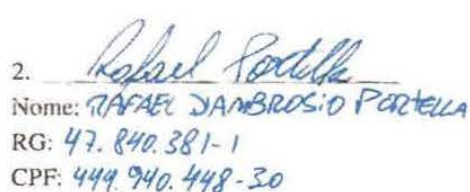 2. Rafael Portella
Nome: RAFAEL DIAMBROSIO PORTELLA
RG: 47.840.381-1
CPF: 444.940.448-30